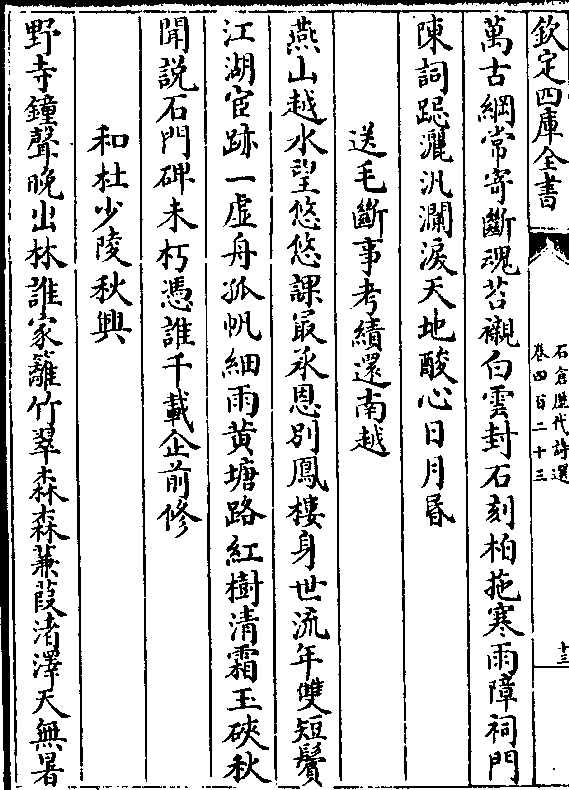 欽定四庫全書
石倉歷代詩選
卷四百二十三
十三
萬古綱常寄斷魂苔襯白雲封石刻柏拖寒雨障祠門
陳詞跽灑汎瀾淚天地酸心日月昬
送毛斷事考績還南越
燕山越水望悠悠課最承恩别鳳樓身世流年雙短鬢
江湖宦跡一虚舟孤帆細雨黄塘路紅樹清霜玉硤秋
聞説石門碑未朽憑誰千載企前修
和杜少陵秋興
野寺鐘聲晚出林誰家籬竹翠森森蒹葭渚澤天無暑